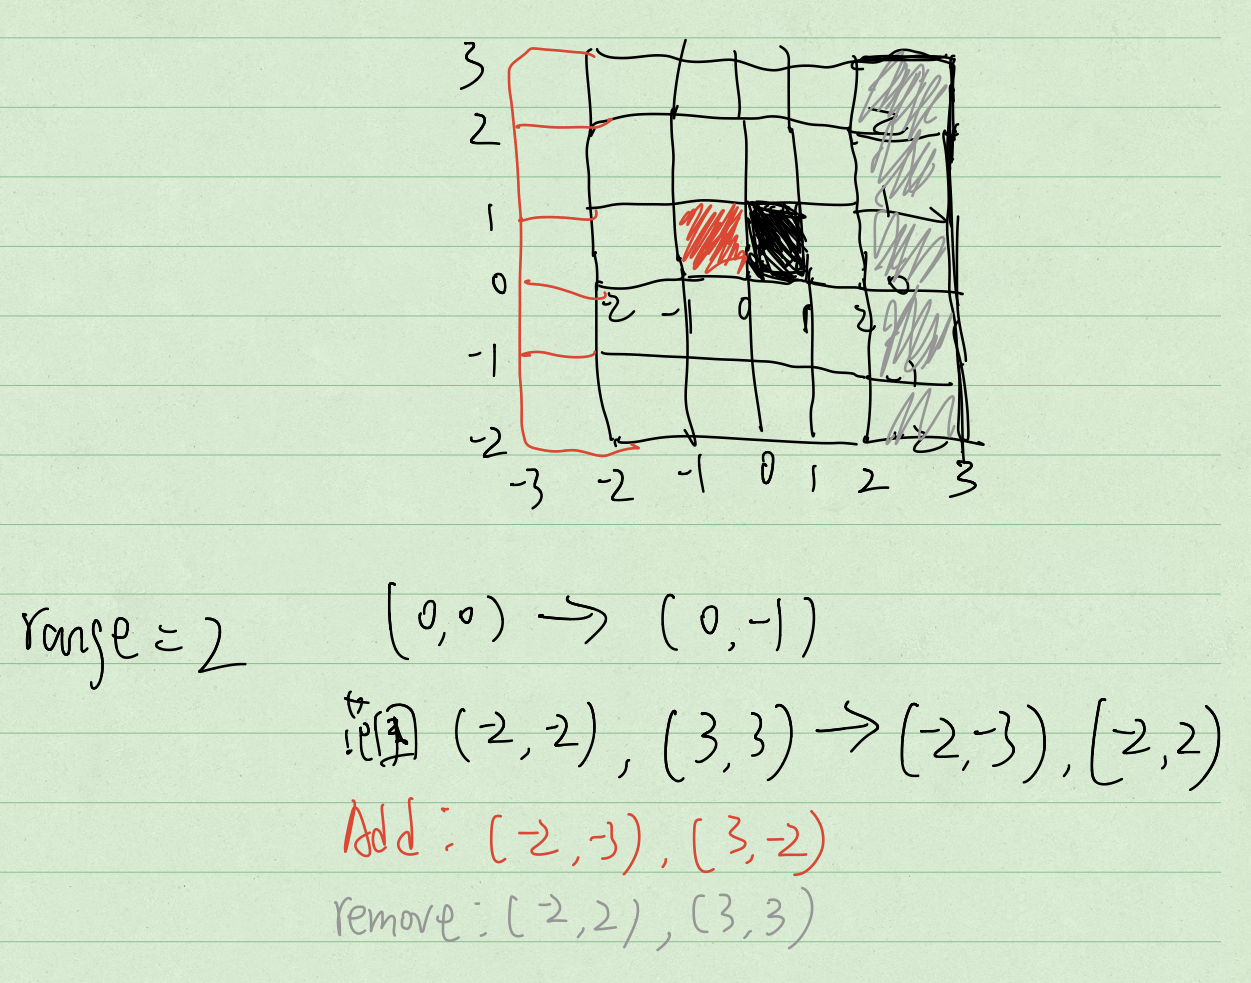 3
2
1
0
-1
-2
-2 -1 0 1 2
2
1
0
-1
-2
-3 -2 -1 0 1 2 3
range = 2
(0,0) → (0,-1)
(-2,-2), (3,3) → (-2,-3), (-2,2)
Add: (-2,-3), (3,-2)
remove: (-2,2), (3,3)